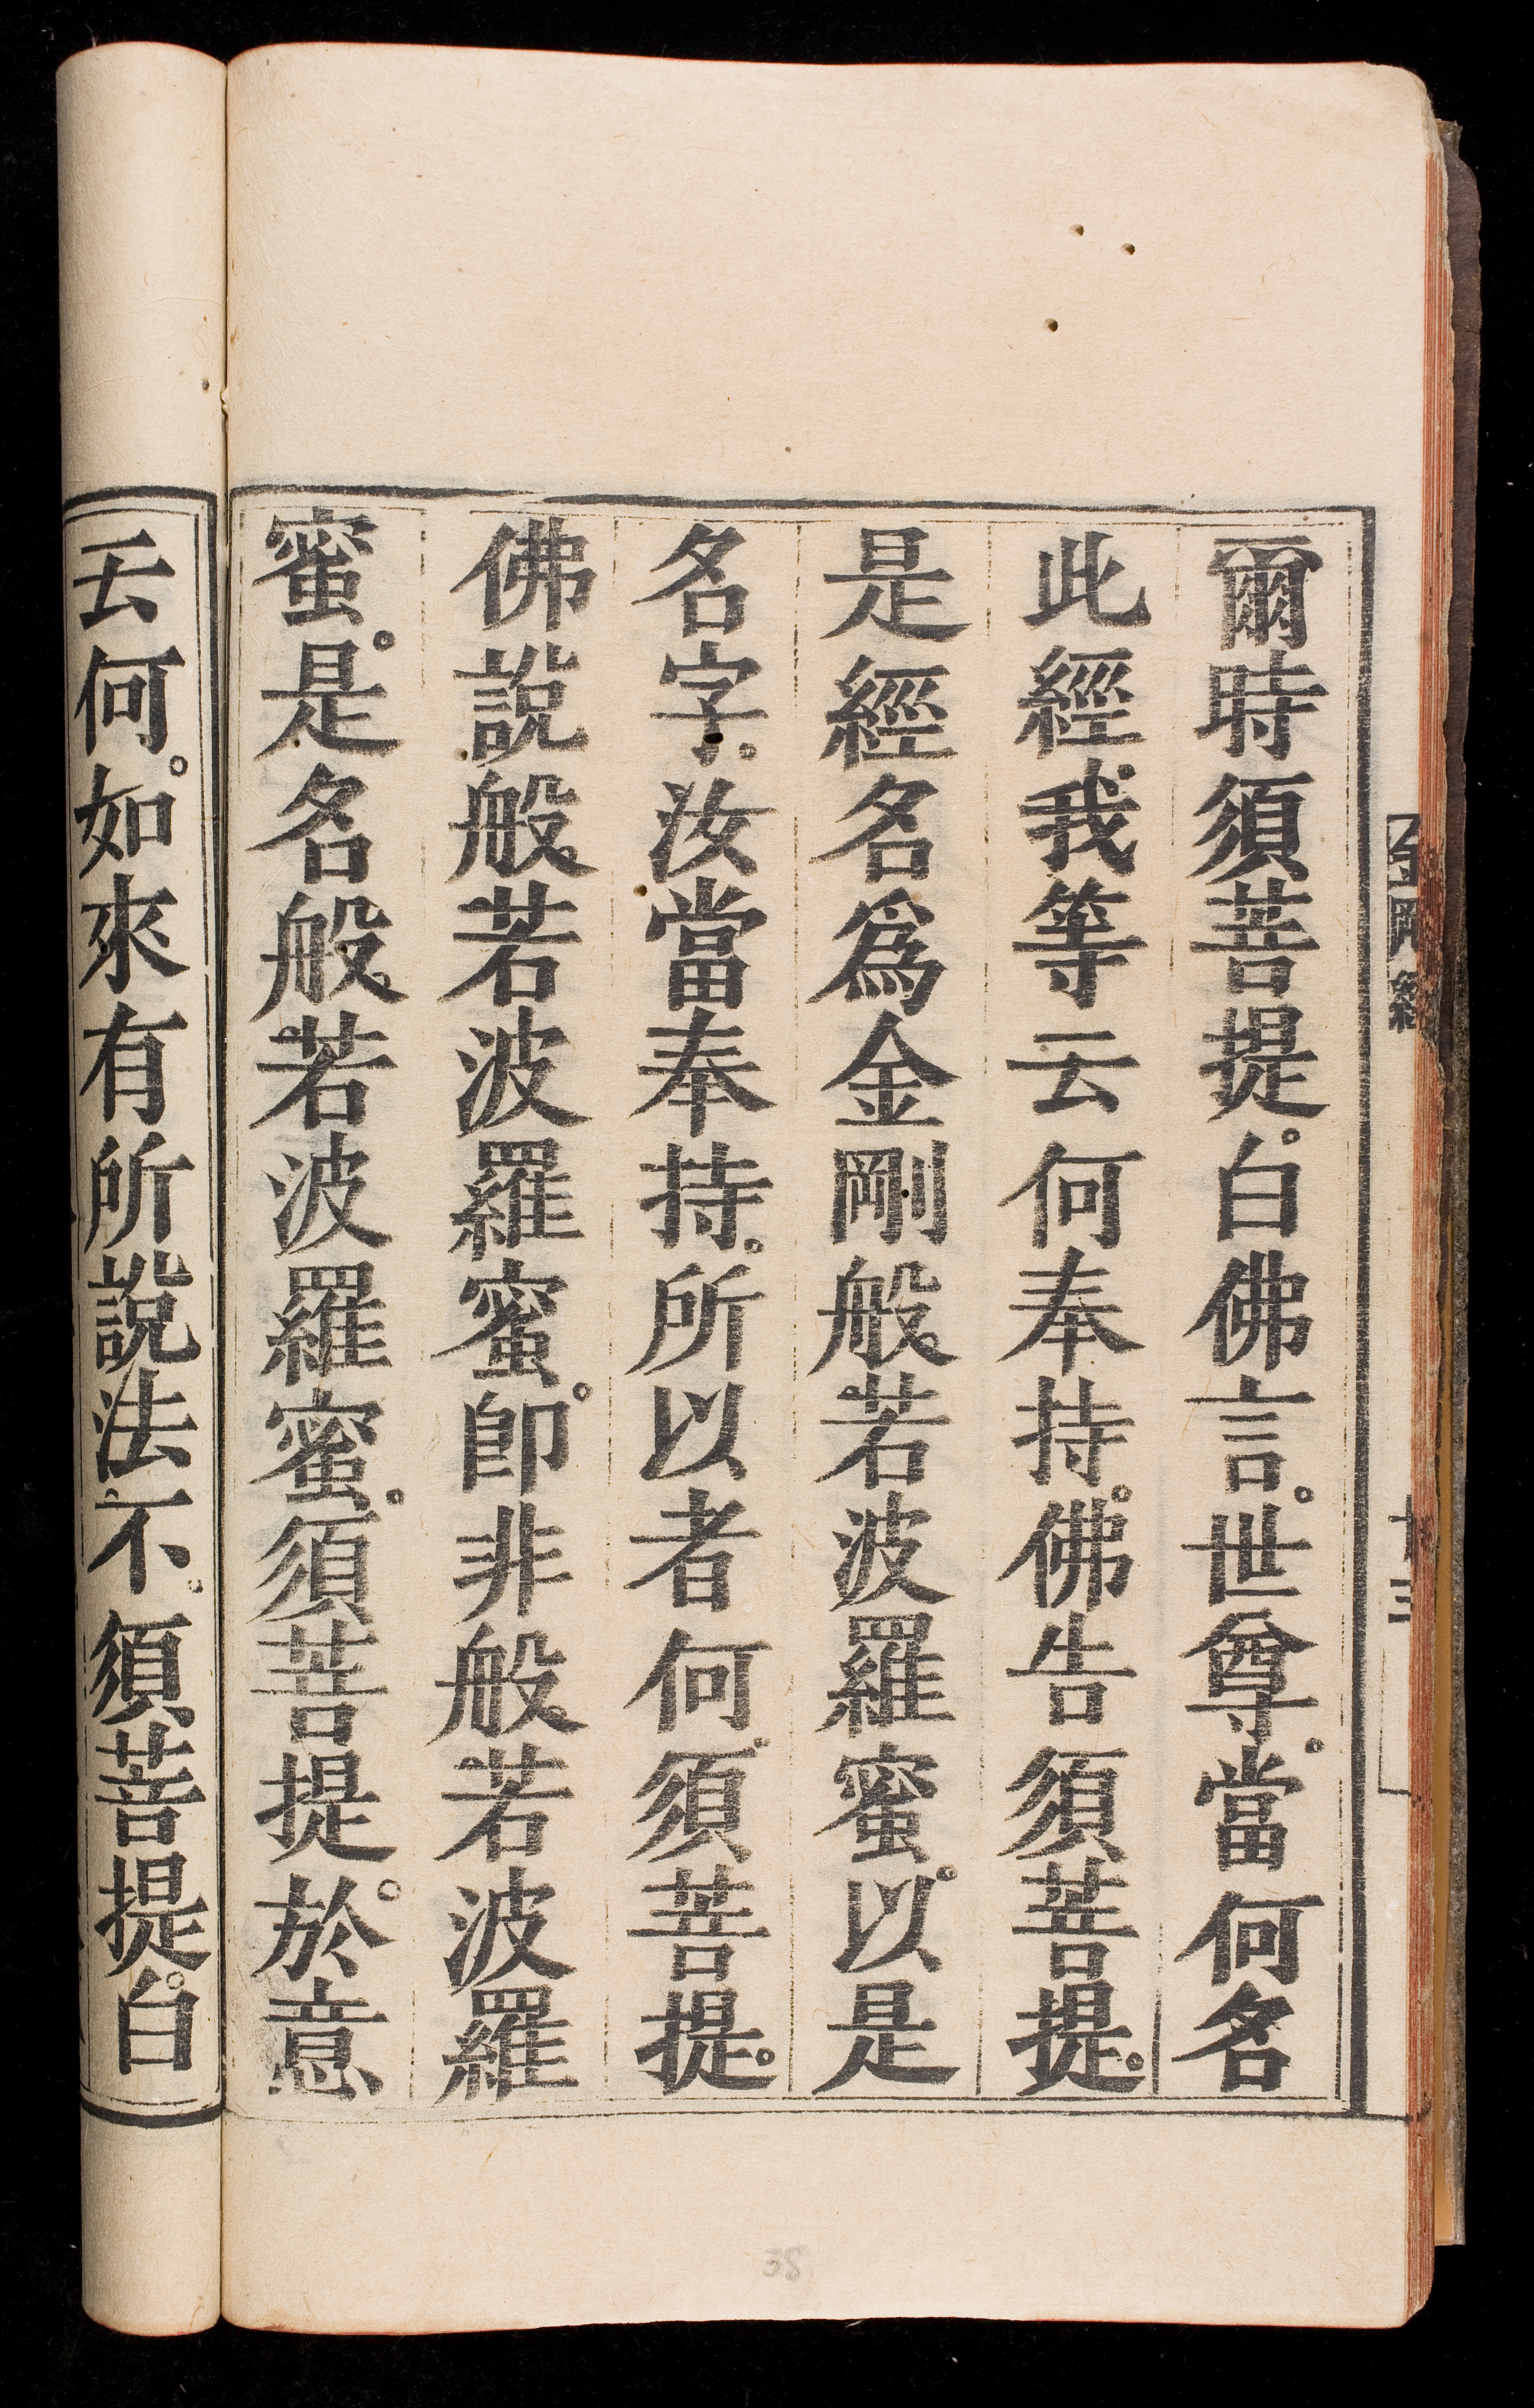 爾時須菩提。白佛言。世尊。當何名
此經。我等云何奉持。佛告須菩提。
是經名爲金剛般若波羅蜜。以是
名字。汝當奉持。所以者何。須菩提。
佛說般若波羅蜜。卽非般若波羅
蜜。是名般若波羅蜜。須菩提。於意
云何。如來有所說法不。須菩提。白
38